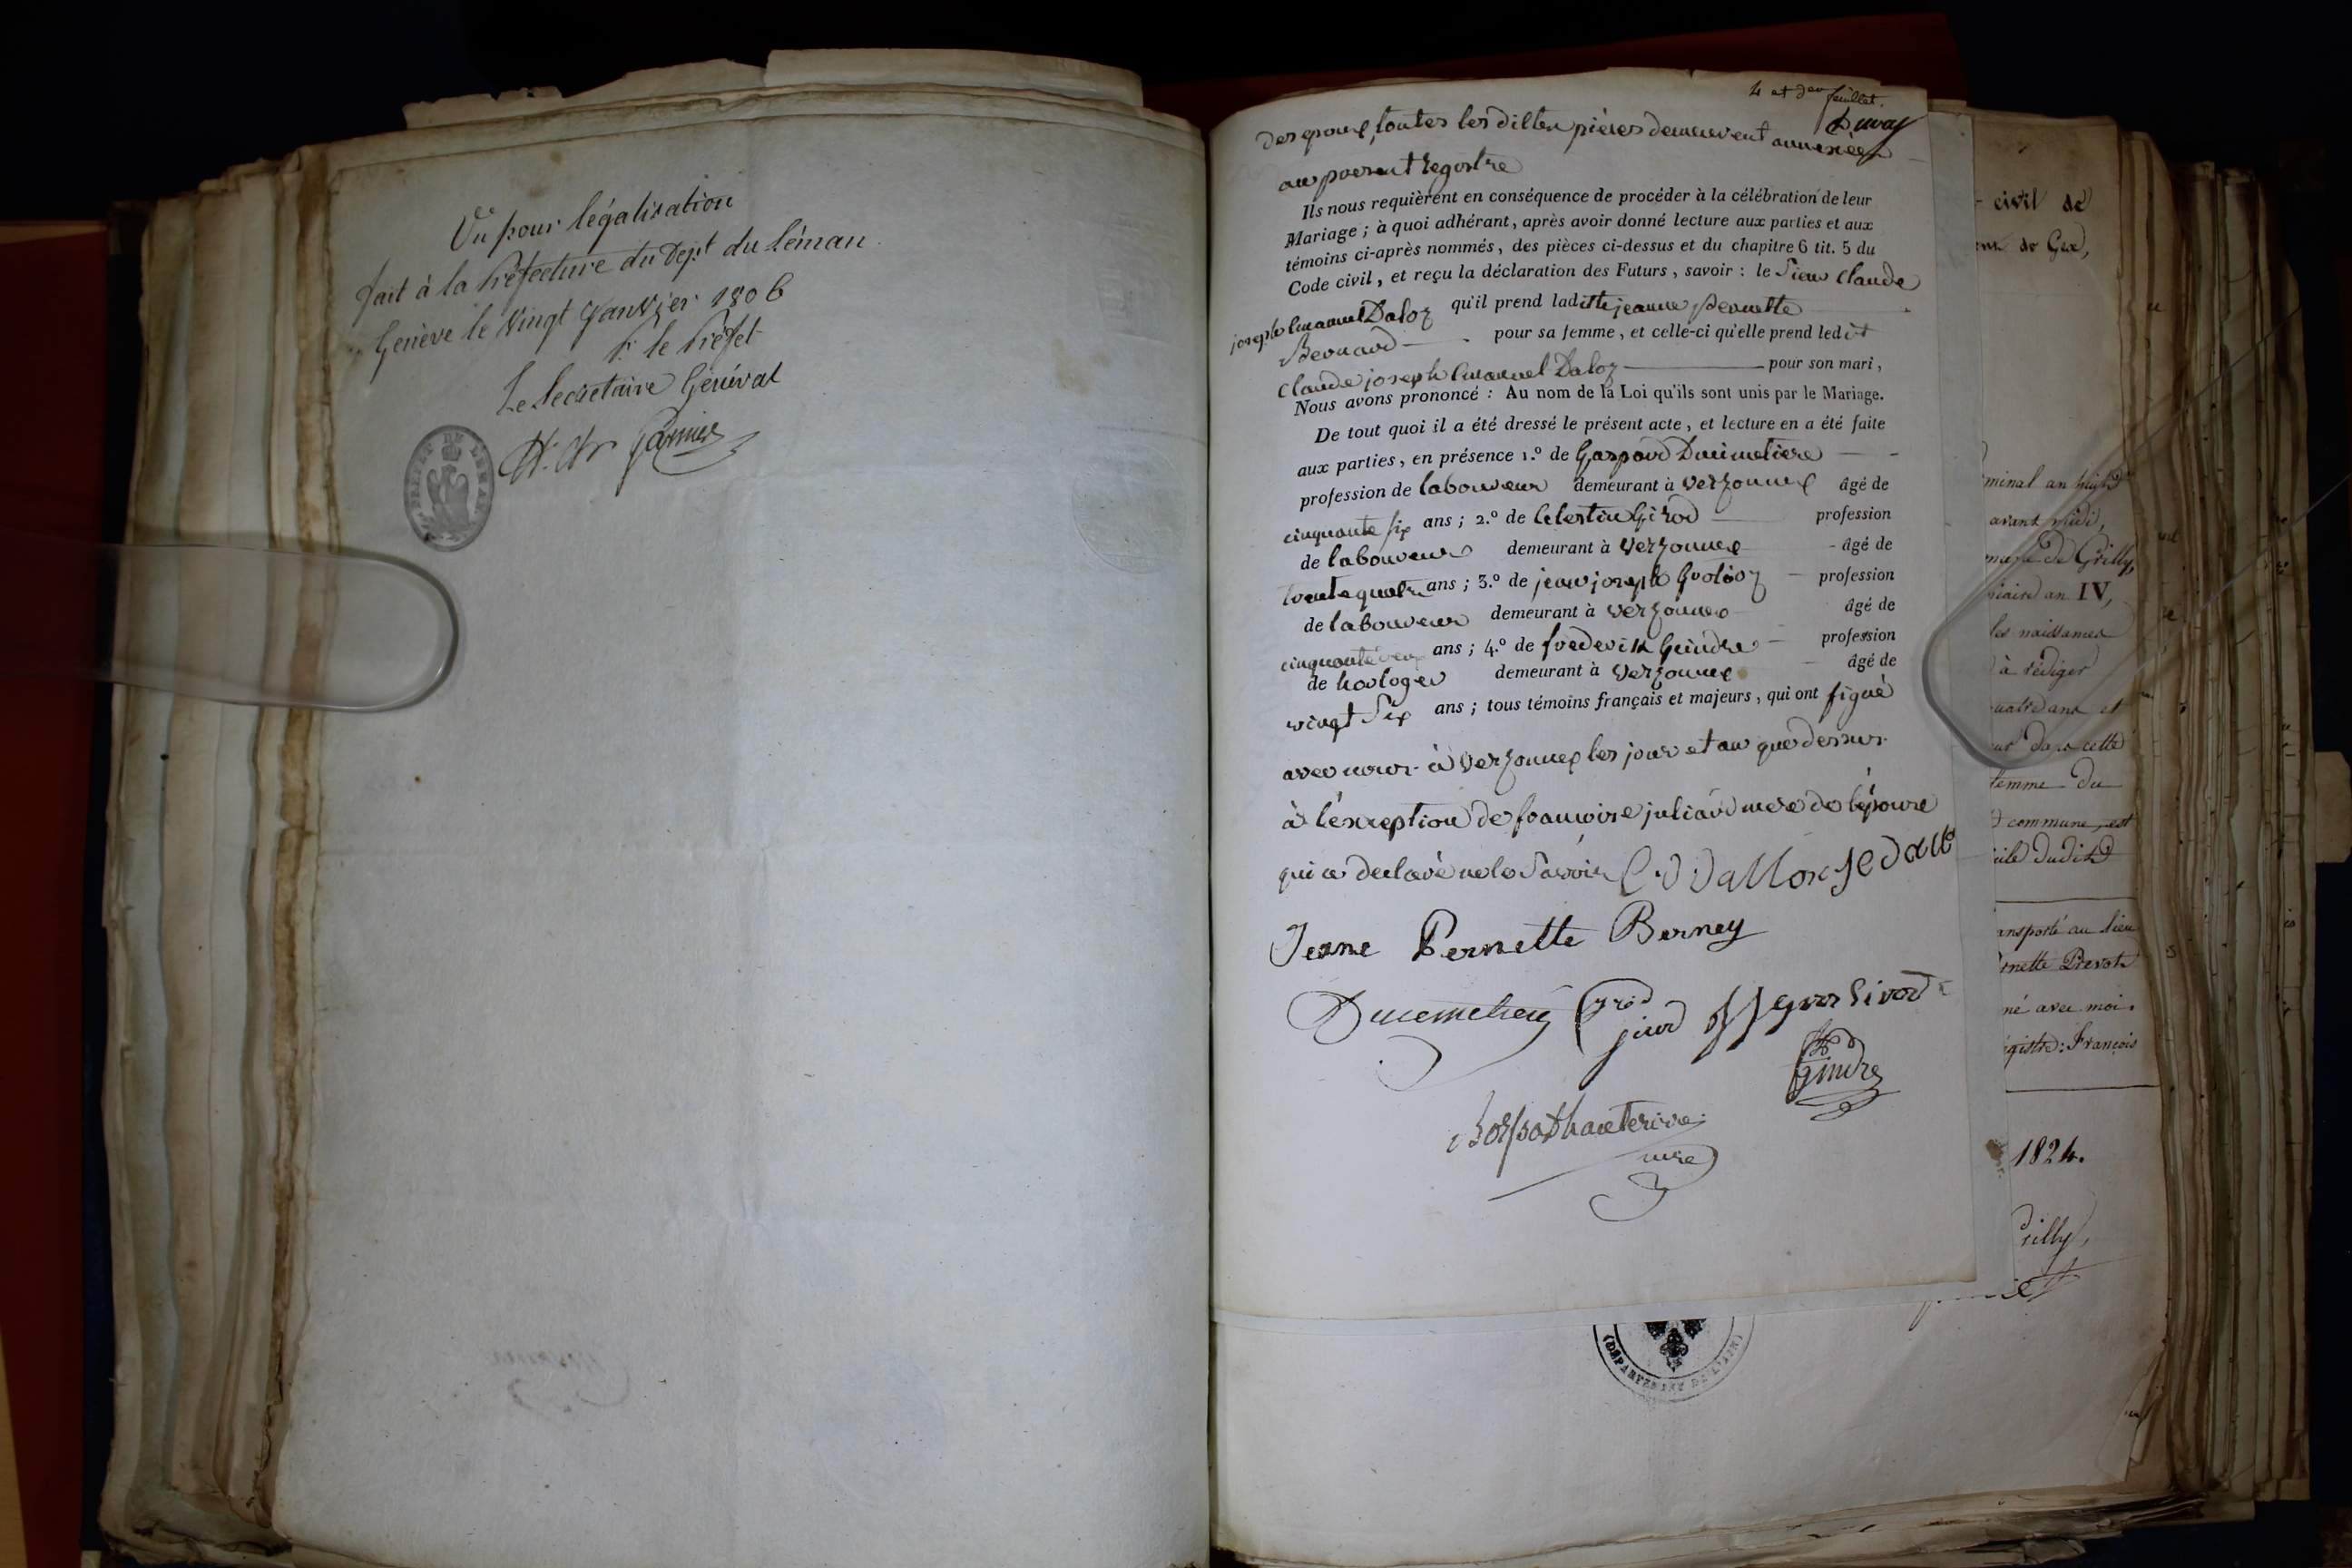 Vu pour légalisation
fait à la Préfecture du Dépt du Léman
Genève le Vingt Janvier 1806
Pr le Préfet
Le Secretaire Général
Garnier
PREFET DU LEMAN
4 et der feuillet.
Duvay
des epoux, toutes les dittes pièces demeurent annexées
au present registre
Ils nous requièrent en conséquence de procéder à la célébration de leur
Mariage ; à quoi adhérant, après avoir donné lecture aux parties et aux
témoins ci-après nommés, des pièces ci-dessus et du chapitre 6 tit. 5 du
Code civil, et reçu la déclaration des Futurs, savoir : le Sieur Claude
joseph Emanuel Daloz qu'il prend laditte jeanne Pernette
Bernard pour sa femme, et celle-ci qu'elle prend ledit
Claude joseph Emanuel Daloz pour son mari,
Nous avons prononcé : Au nom de la Loi qu'ils sont unis par le Mariage.
De tout quoi il a été dressé le présent acte, et lecture en a été faite
aux parties, en présence 1.º de Gaspard Ducimetière
profession de laboureur demeurant à Verzonnex âgé de
cinquante six ans ; 2.º de Celestin Girod profession
de laboureur demeurant à Verzonnex âgé de
trente quatre ans ; 3.º de jean joseph profession
de laboureur demeurant à Verzonnex âgé de
cinquante ans ; 4.º de frederik Geindre profession
de horloger demeurant à Verzonnex âgé de
vingt Six ans ; tous témoins français et majeurs, qui ont signé
avec nous à Verzonnex les jour et an que dessus
à l'exception de francoise juliard mere de l'épouse
qui a declaré ne le Savoir
Jeane Pernette Berney
Girod
gindre
d'hauterive
mre
- civil de
de Gex,
minal an huit
avant midi,
de Grilly,
an IV,
les naissances
à rédiger
quatre ans et
dans cette
femme du
commune, est
dudit
ansporté au lieu
rnette Prevot
né avec moi.
gistre : François
1824.
rilly,
(DÉPARTEMENT DE L'AIN)